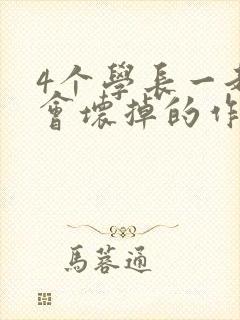 4个學長一起
會壞掉的作
馬蓉通